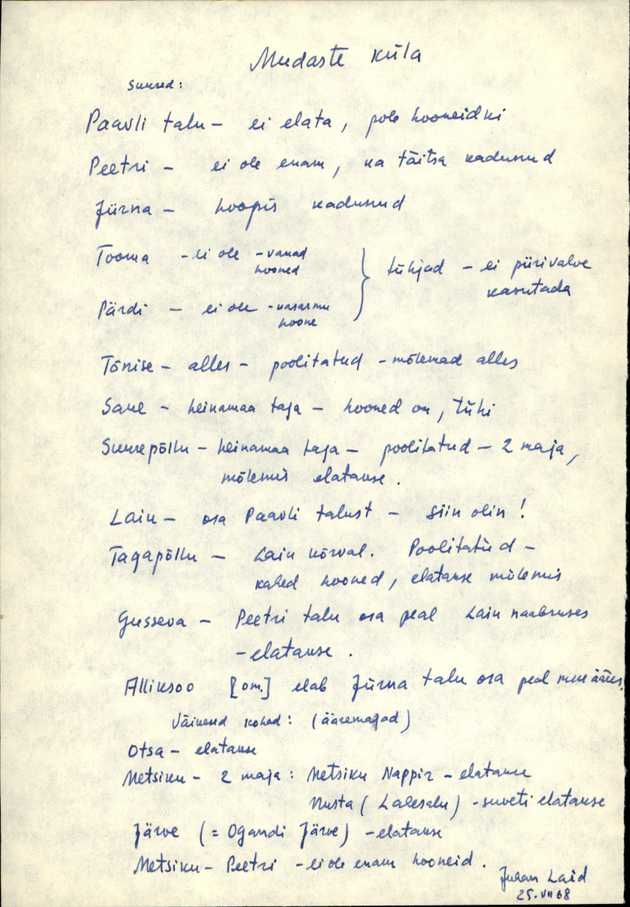 Mudaste küla
Suured:
Paavli talu – ei elata, pole hooneidki
Peetri – ei ole enam, ka täitsa kadunud
Jürna – hoopis kadunud
Tooma – ei ole – vanad hooned
Pärdi – ei ole – vasarmu hoone
} tühjad – ei piirivalve kasutada
Tõnise – alles – poolitatud – mõlemad alles
Saue – heinamaa taga – hooned on, tühi
Suurepõllu – heinamaa taga – poolitatud – 2 maja,
mõlemis elatakse.
Laiu – osa Paavli talust – siin olin!
Tagapõllu – Laiu kõrval. Poolitatud –
kahed hooned, elatakse mõlemis
Gusseva – Peetri talu osa peal Laiu naabruses
– elatakse.
Alliksoo [om.] elab Jürna talu osa peal mere ääres.
Väikesed kohad: (ääremajad)
Otsa – elatakse
Metsiku – 2 maja: Metsiku Nappir – elatakse
Musta (Lalesalu) – suveti elatakse
Järve (= Ogandi Järve) – elatakse
Metsiku – Peetri – ei ole enam hooneid.
Juhan Laid
25.VII 68